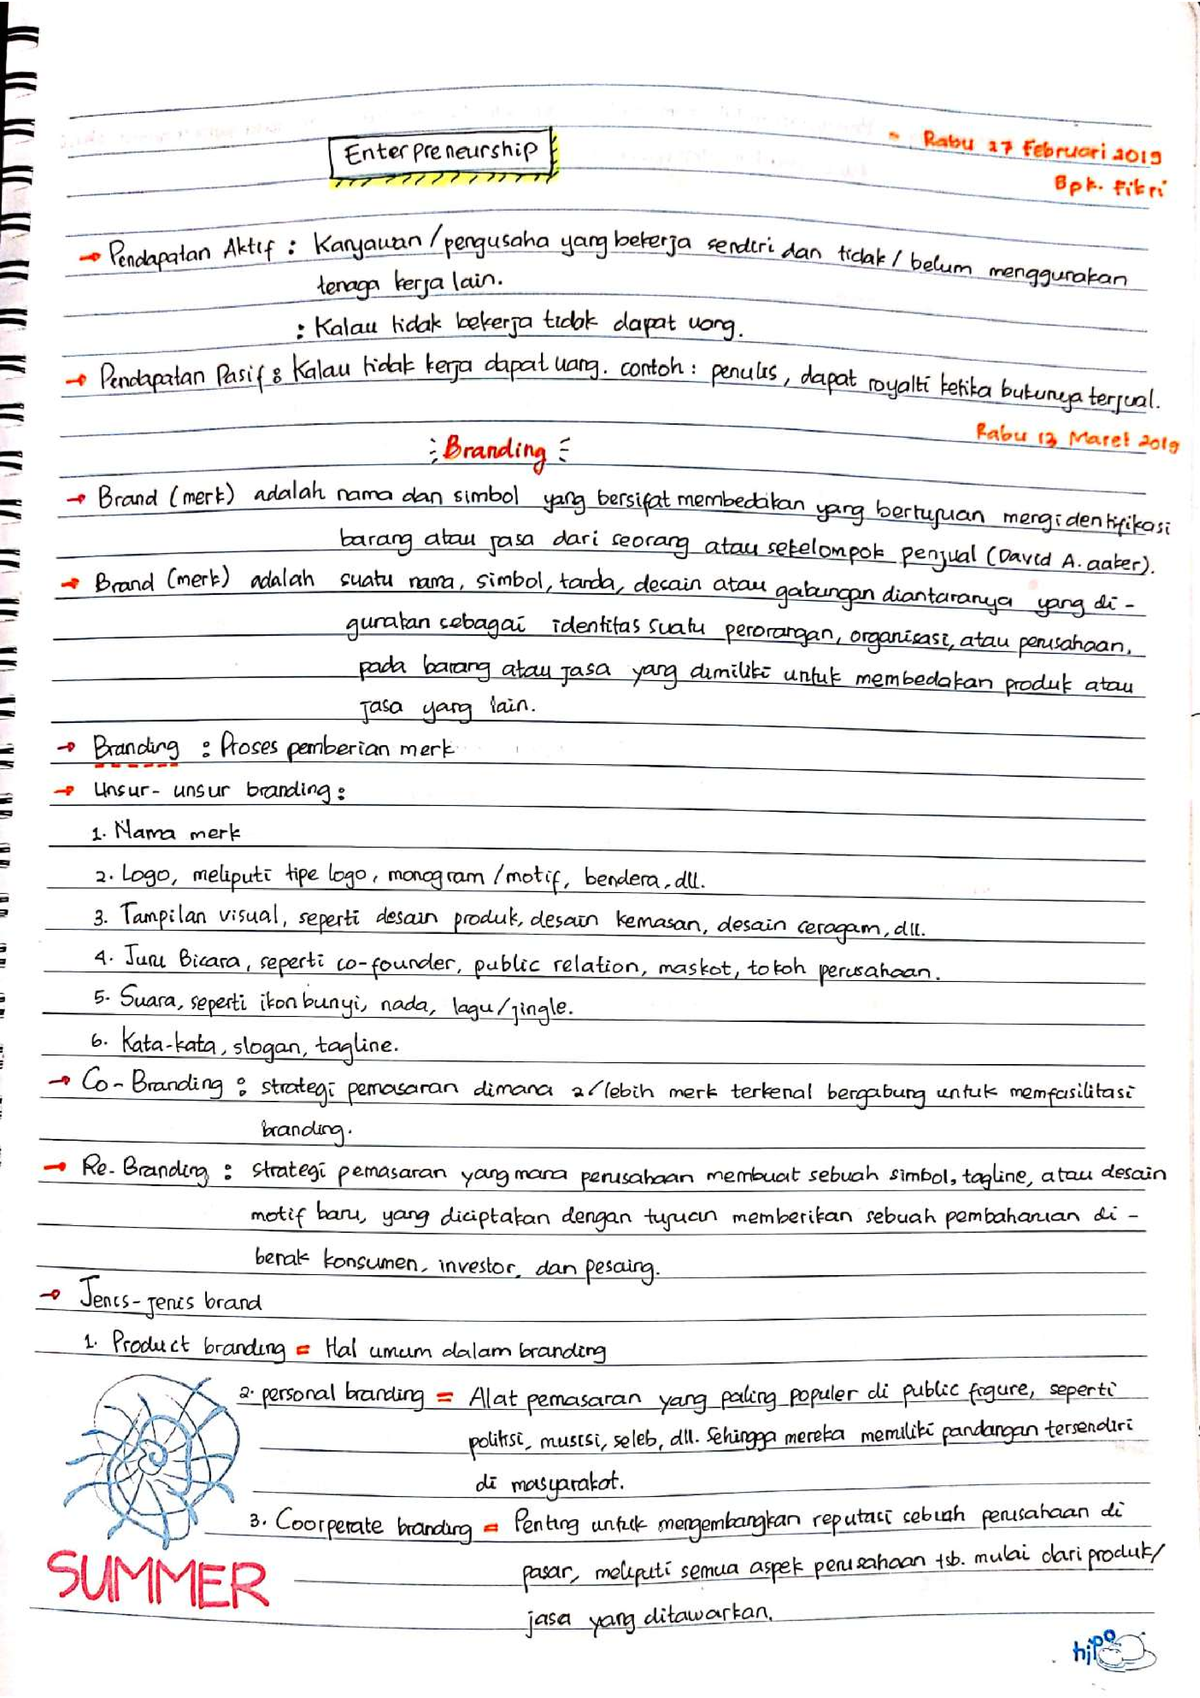 Enterpreneurship
- Rabu 27 Februari 2019
Bpk. Fikri
→ Pendapatan Aktif : Karyawan/pengusaha yang bekerja sendiri dan tidak/belum menggunakan
tenaga kerja lain.
: Kalau tidak bekerja tidak dapat uang.
→ Pendapatan Pasif : Kalau tidak kerja dapat uang. contoh : penulis, dapat royalti ketika bukunya terjual.
Rabu 13 Maret 2019
Branding
→ Brand (merk) adalah nama dan simbol yang bersifat membedakan yang bertujuan mengidentifikasi
barang atau jasa dari seorang atau sekelompok penjual (David A. aaker).
→ Brand (merk) adalah suatu nama, simbol, tanda, desain atau gabungan diantaranya yang di-
gunakan sebagai identitas suatu perorangan, organisasi, atau perusahaan,
pada barang atau jasa yang dimiliki untuk membedakan produk atau
jasa yang lain.
→ Branding : Proses pemberian merk
→ Unsur-unsur branding :
1. Nama merk
2. Logo, meliputi tipe logo, monogram/motif, bendera, dll.
3. Tampilan visual, seperti desain produk, desain kemasan, desain ceragam, dll.
4. Juru Bicara, seperti co-founder, public relation, maskot, tokoh perusahaan.
5. Suara, seperti ikon bunyi, nada, lagu/jingle.
6. Kata-kata, slogan, tagline.
→ Co-Branding : strategi pemasaran dimana 2/lebih merk terkenal bergabung untuk memfasilitasi
branding.
→ Re-Branding : strategi pemasaran yang mana perusahaan membuat sebuah simbol, tagline, atau desain
motif baru, yang diciptakan dengan tujuan memberikan sebuah pembaharuan di-
benak konsumen, investor, dan pesaing.
→ Jenis-jenis brand
1. Product branding = Hal umum dalam branding
2. personal branding = Alat pemasaran yang paling populer di public figure, seperti
politisi, musisi, seleb, dll. Sehingga mereka memiliki pandangan tersendiri
di masyarakat.
3. Coorperate branding = Penting untuk mengembangkan reputasi sebuah perusahaan di
pasar, meliputi semua aspek perusahaan tsb. mulai dari produk/
jasa yang ditawarkan.
SUMMER
hipo